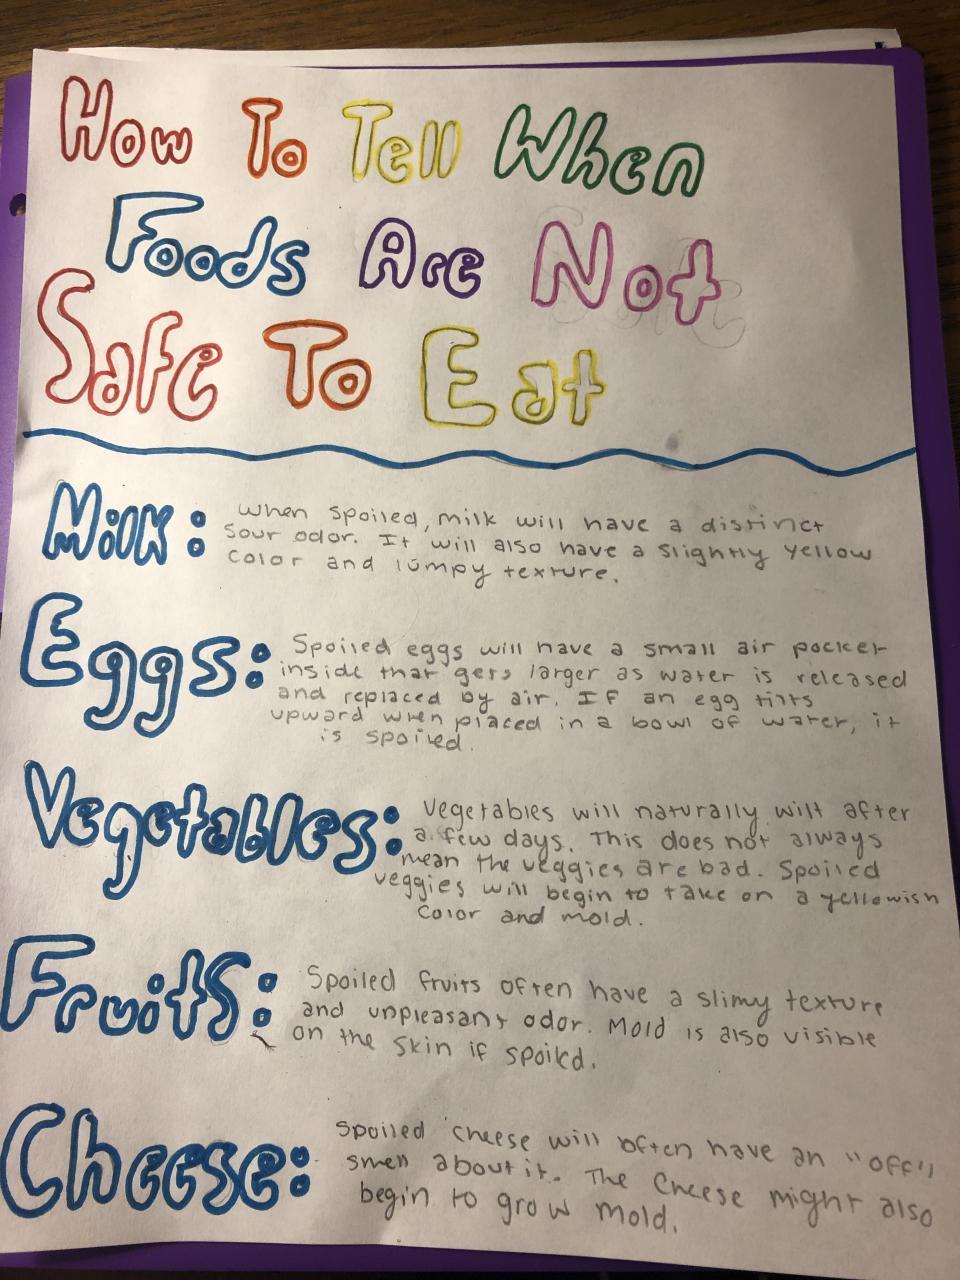 How To Tell When
Foods Are Not
Safe To Eat
Milk: When spoiled, milk will have a distinct
sour odor. It will also have a slightly yellow
color and lumpy texture.
Eggs: Spoiled eggs will have a small air pocket
inside that gets larger as water is released
and replaced by air. If an egg tilts
upward when placed in a bowl of water, it
is spoiled.
Vegetables: Vegetables will naturally wilt after
a few days. This does not always
mean the veggies are bad. Spoiled
veggies will begin to take on a yellowish
color and mold.
Fruits: Spoiled fruits often have a slimy texture
and unpleasant odor. Mold is also visible
on the skin if spoiled.
Cheese: Spoiled cheese will often have an "off"
smell about it. The cheese might also
begin to grow mold.